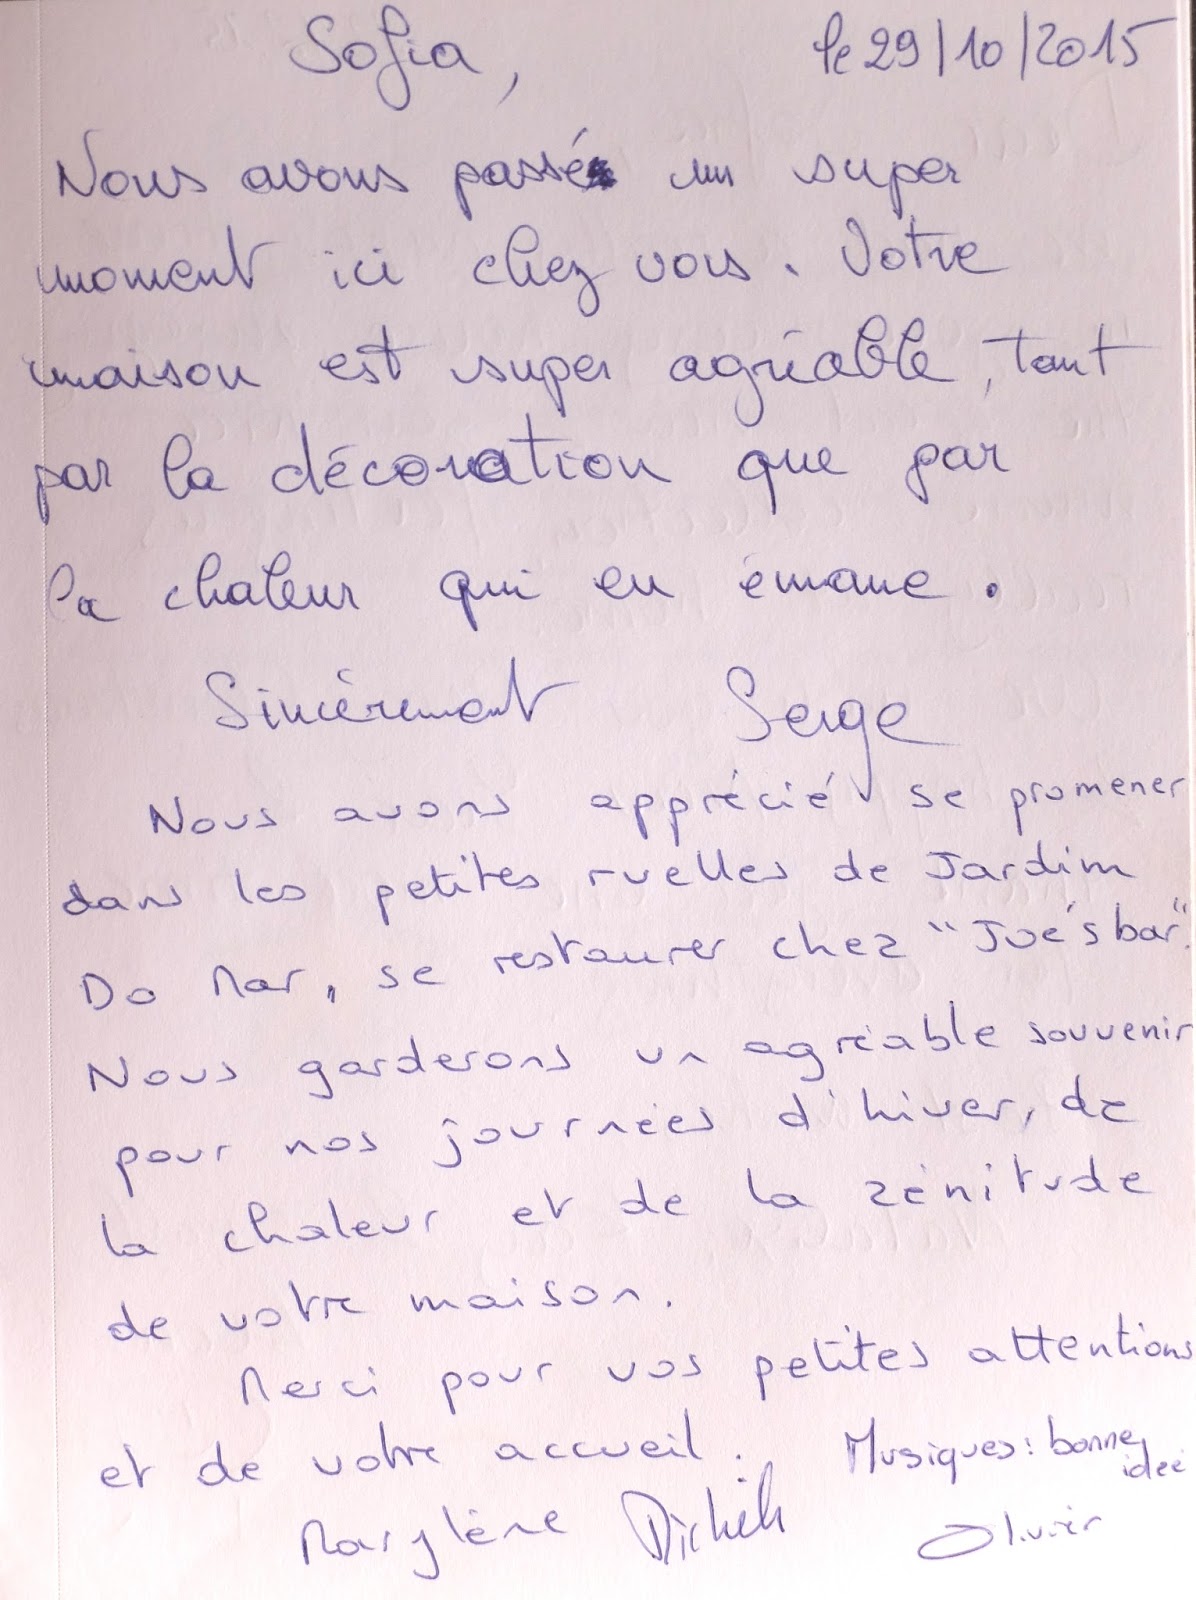 Sofia,
le 29/10/2015
Nous avons passé un super
moment ici chez vous. Votre
maison est super agréable, tant
par la décoration que par
la chaleur qui en émane.
Sincèrement Serge
Nous avons apprécié se promener
dans les petites ruelles de Jardim
Do Mar, se restaurer chez "Joe's bar".
Nous garderons un agréable souvenir
pour nos journées d'hiver, de
la chaleur et de la zénitude
de votre maison.
Merci pour vos petites attentions
et de votre accueil.
Musiques : bonne
idée
Marylène Michèle
Olivier